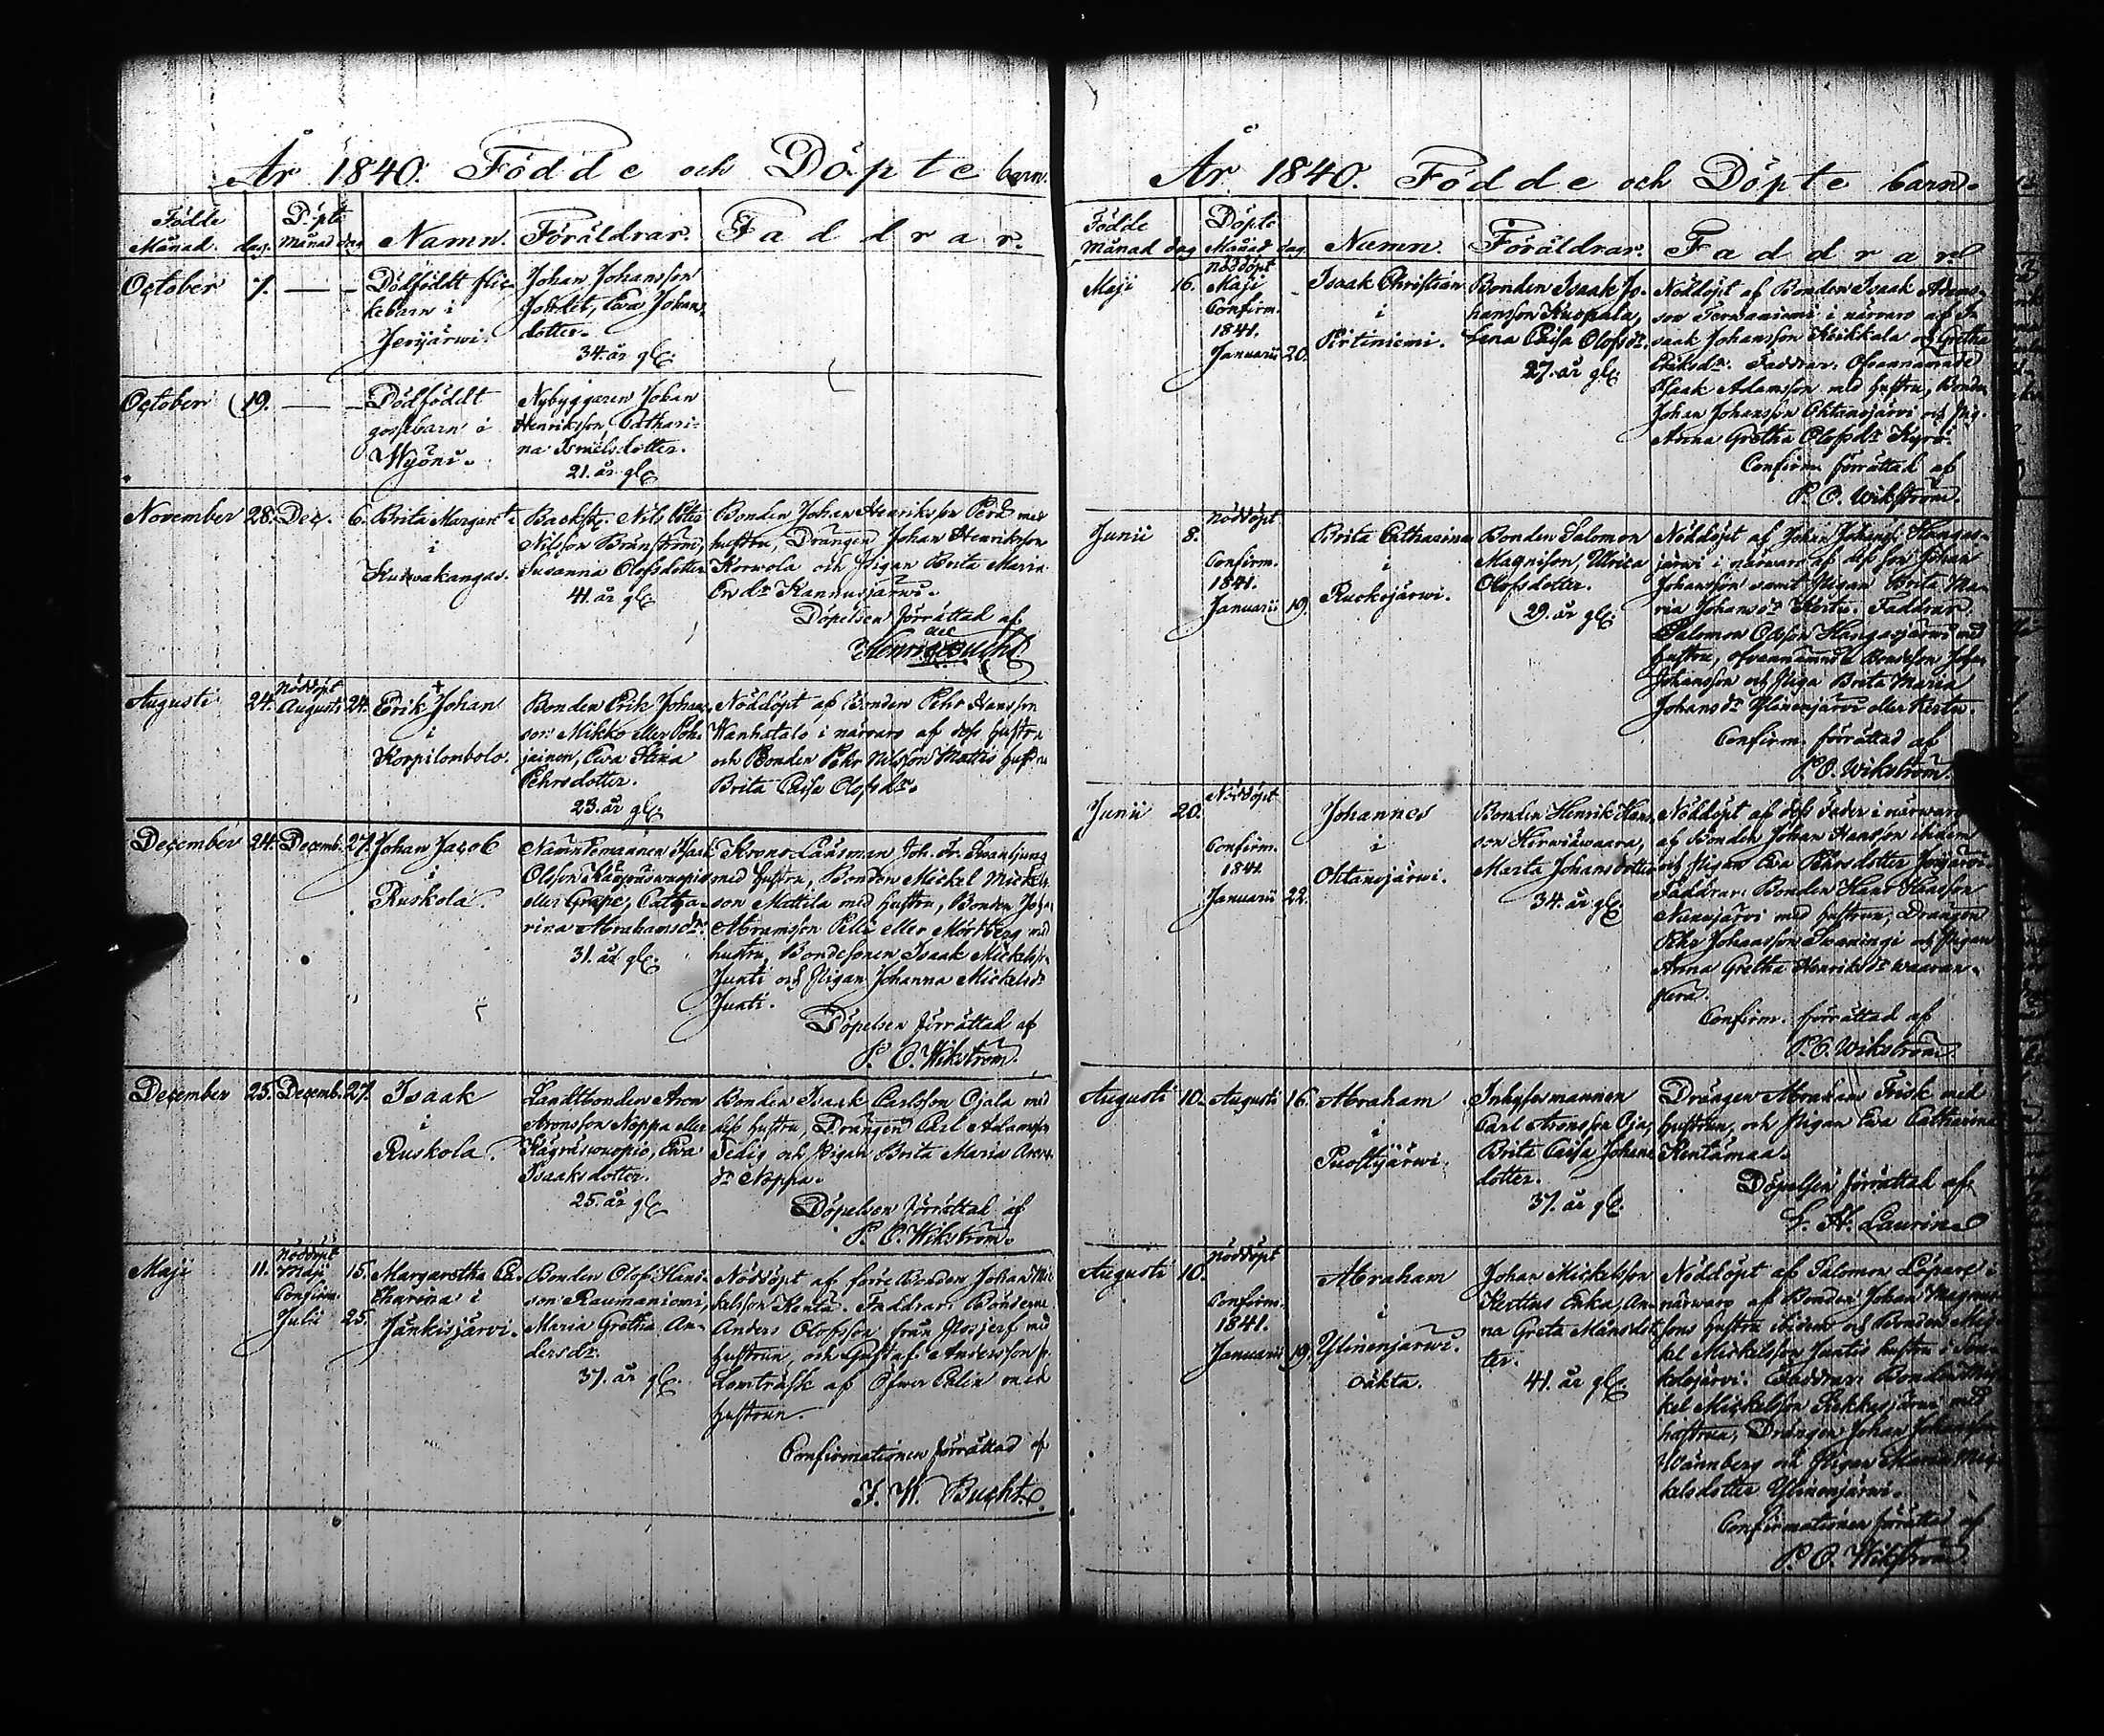 År 1840. Födde och Döpte barn.
Födde Månad. dag. Döpte Månad dag Namn. Föräldrar. Faddrar.
October 7. — — Dödföddt flic-
kebarn i
Jerijärwi.
Johan Johansson
Johdet, Ewa Johans
dotter.
34. år gl.
October 19. — — Dödföddt
gossebarn i
Wyöni.
Nybyggaren Johan
Henriksson, Cathari-
na Ismelsdotter.
21. år gl.
November 28. Dec. 6. Brita Margareta
i
Kuiwakangas.
Backst. Nils Petter
Nilsson Bränström,
Susanna Olofsdotter
41. år gl.
Bonden Johan Henriksson Perä med
hustru, Drängen Johan Henriksson
Korwola och Pigan Brita Maria
Ersdr Kannusjärwi.
Döpelsen förrättad af
Henric Bucht
Augusti 24. Nöddöpt Augusti 24. Erik Johan
i
Korpilombolo.
Bonden Erik Johans
son Mikko eller Poh-
jainen, Ewa Stina
Pehrsdotter.
23. år gl.
Nöddöpt af Bonden Pehr Hansson
Wanhatalo i närvaro af dess hustru
och Bonden Pehr Nilsson Mattis hustru
Brita Caisa Olofsdr.
December 24. Decemb. 27. Johan Jacob
i
Ruskola.
Nämndemannen Isaac
Olsson
eller Grape, Catha-
rina Abrahamsdr.
31. år gl.
Krono Länsman Joh. Fr. Swanljung
med hustru, Bonden Mickel Mickels-
son Mattila med hustru, Bonden Joh.
Abramsson Pello eller Mörtberg med
hustru, Bondesonen Isaak Mickelss.
Juuti och Pigan Johanna Mickelsdr
Juuti.
Döpelsen förrättad af
P. O. Wikström.
December 25. Decemb. 27. Isaak
i
Ruskola.
Landtbonden Aron
Aronsson Noppa eller
Ewa
Isaaksdotter.
25. år gl.
Bonden Isaak Carlsson Ojala med
dess hustru, Drängen Carl Adamsson
Tedig och Pigan Brita Maria Arons
dr Noppa.
Döpelsen förrättad af
P. O. Wikström.
Maji 11. Nöddöpt Maji 15. Confirm. Julii 25. Margaretha Ca-
tharina i
Jänkisjärvi.
Bonden Olof Hans-
son Raumaniemi,
Maria Gretha An-
dersdr.
37. år gl.
Nöddöpt af förre Bonden Johan Mic-
kelsson Kenta. Faddrar: Bönderne
Anders Olofsson från Mosjerf med
hustrun, och Gustaf Andersson fr.
Lomträsk af Öfwer Calix med
hustrun.
Confirmationen förrättad af
J. W. Bucht.
År 1840. Födde och Döpte barn.
Födde Månad dag Döpte Månad dag. Namn. Föräldrar. Faddrar.
Maji 16. Nöddöpt Maji
Confirm.
1841.
Januarii 20.
Isaak Christian
i
Pirtiniemi.
Bonden Isaak Jo-
hansson Kuopala,
Lena Caisa Olofsdr.
27. år gl.
Nöddöpt af Bonden Isaak Adams-
son i närvaro af I-
saak Johansson Heikkala och Gretha
Eriksdr. Faddrar: Ofvannämnde
Isaak Adamsson med hustru, Bonden
Johan Johansson Ohtanajärvi och Pig.
Anna Gretha Olofsdr Kyrö.
Confirm. förrättad af
P. O. Wikström.
Junii 8. Nöddöpt
Confirm.
1841.
Januarii 19.
Brita Catharina
i
Ruokojärwi.
Bonden Salomon
Magnisson, Ulrica
Olofsdotter.
29. år gl.
Nöddöpt af Johan Johanss. Kangas-
järwi i närvaro af dess son Johan
Johansson samt Pigan Brita Ma-
ria Johansdr Kerttu. Faddrar
Salomon Olsson Kangasjärwi med
hustru, ofvannämnde Bondeson Johan
Johansson och Piga Brita Maria
Johansdr Ylinenjärvi eller Kerttu.
Confirm. förrättad af
P. O. Wikström.
Junii 20. Nöddöpt
Confirm.
1841.
Januarii 22.
Johannes
i
Ohtanajärwi.
Bonden Henrik Hans
son Hirwiäwaara,
Marta Johansdotter
34. år gl.
Nöddöpt af dess Fader i närwaro
af Bonden Johan Hansson ibidem
och Pigan Ewa Pehrsdotter Jerijärvi.
Faddrar: Bonden Hans Hansson
med hustrun, Drängen
Pehr Johansson Skaningi och Pigan
Anna Gretha Henriksdr Waaran-
perä.
Confirm. förrättad af
P. O. Wikström
Augusti 10. Augusti 16. Abraham
i
Puostijärwi.
Inhysesmannen
Carl Aronsson Oja,
Brita Caisa Johans
dotter.
37. år gl.
Drängen Abraham Frisk med
hustrun, och Pigan Ewa Catharina
Rentämaa.
Döpelsen förrättad af
L. H. Laurin
Augusti 10. Nöddöpt
Confirm.
1841.
Januarii 19.
Abraham
i
Ylinenjärwi.
oäkta.
Johan Mickelsson
Kerttus Enka, An-
na Greta Månsdot-
ter.
41. år gl.
Nöddöpt af Salomon Löpare i
närwaro af Bonden Johan Magnus-
sons hustru ibidem och Bonden Mic-
kel Mickelsson Juutis hustru i
Faddrar: Bonden Mic-
kel Mickelsson med
hustrun, Drängen Johan Johansson
Wännberg och Pigan Maria Mic-
kelsdotter Ylinenjärwi.
Confirmationen förrättad af
P. O. Wikström